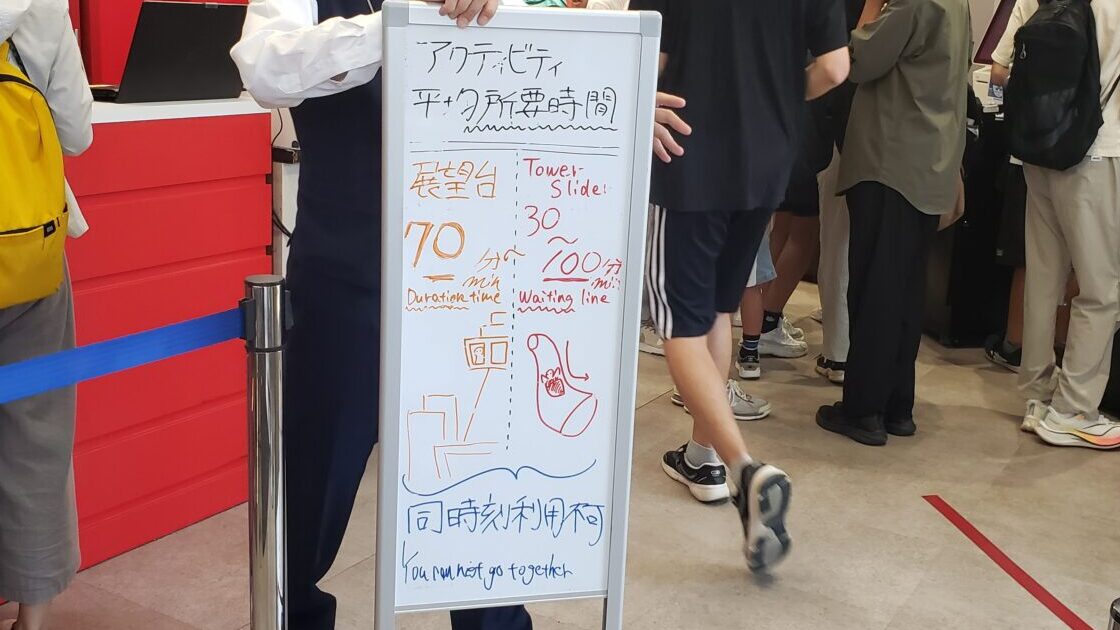 アクティビティ
平均所要時間
展望台
70
分~
min
Duration time
Tower
Slider
30
~
100分
min
Waiting line
同時刻利用不可
You can not go together